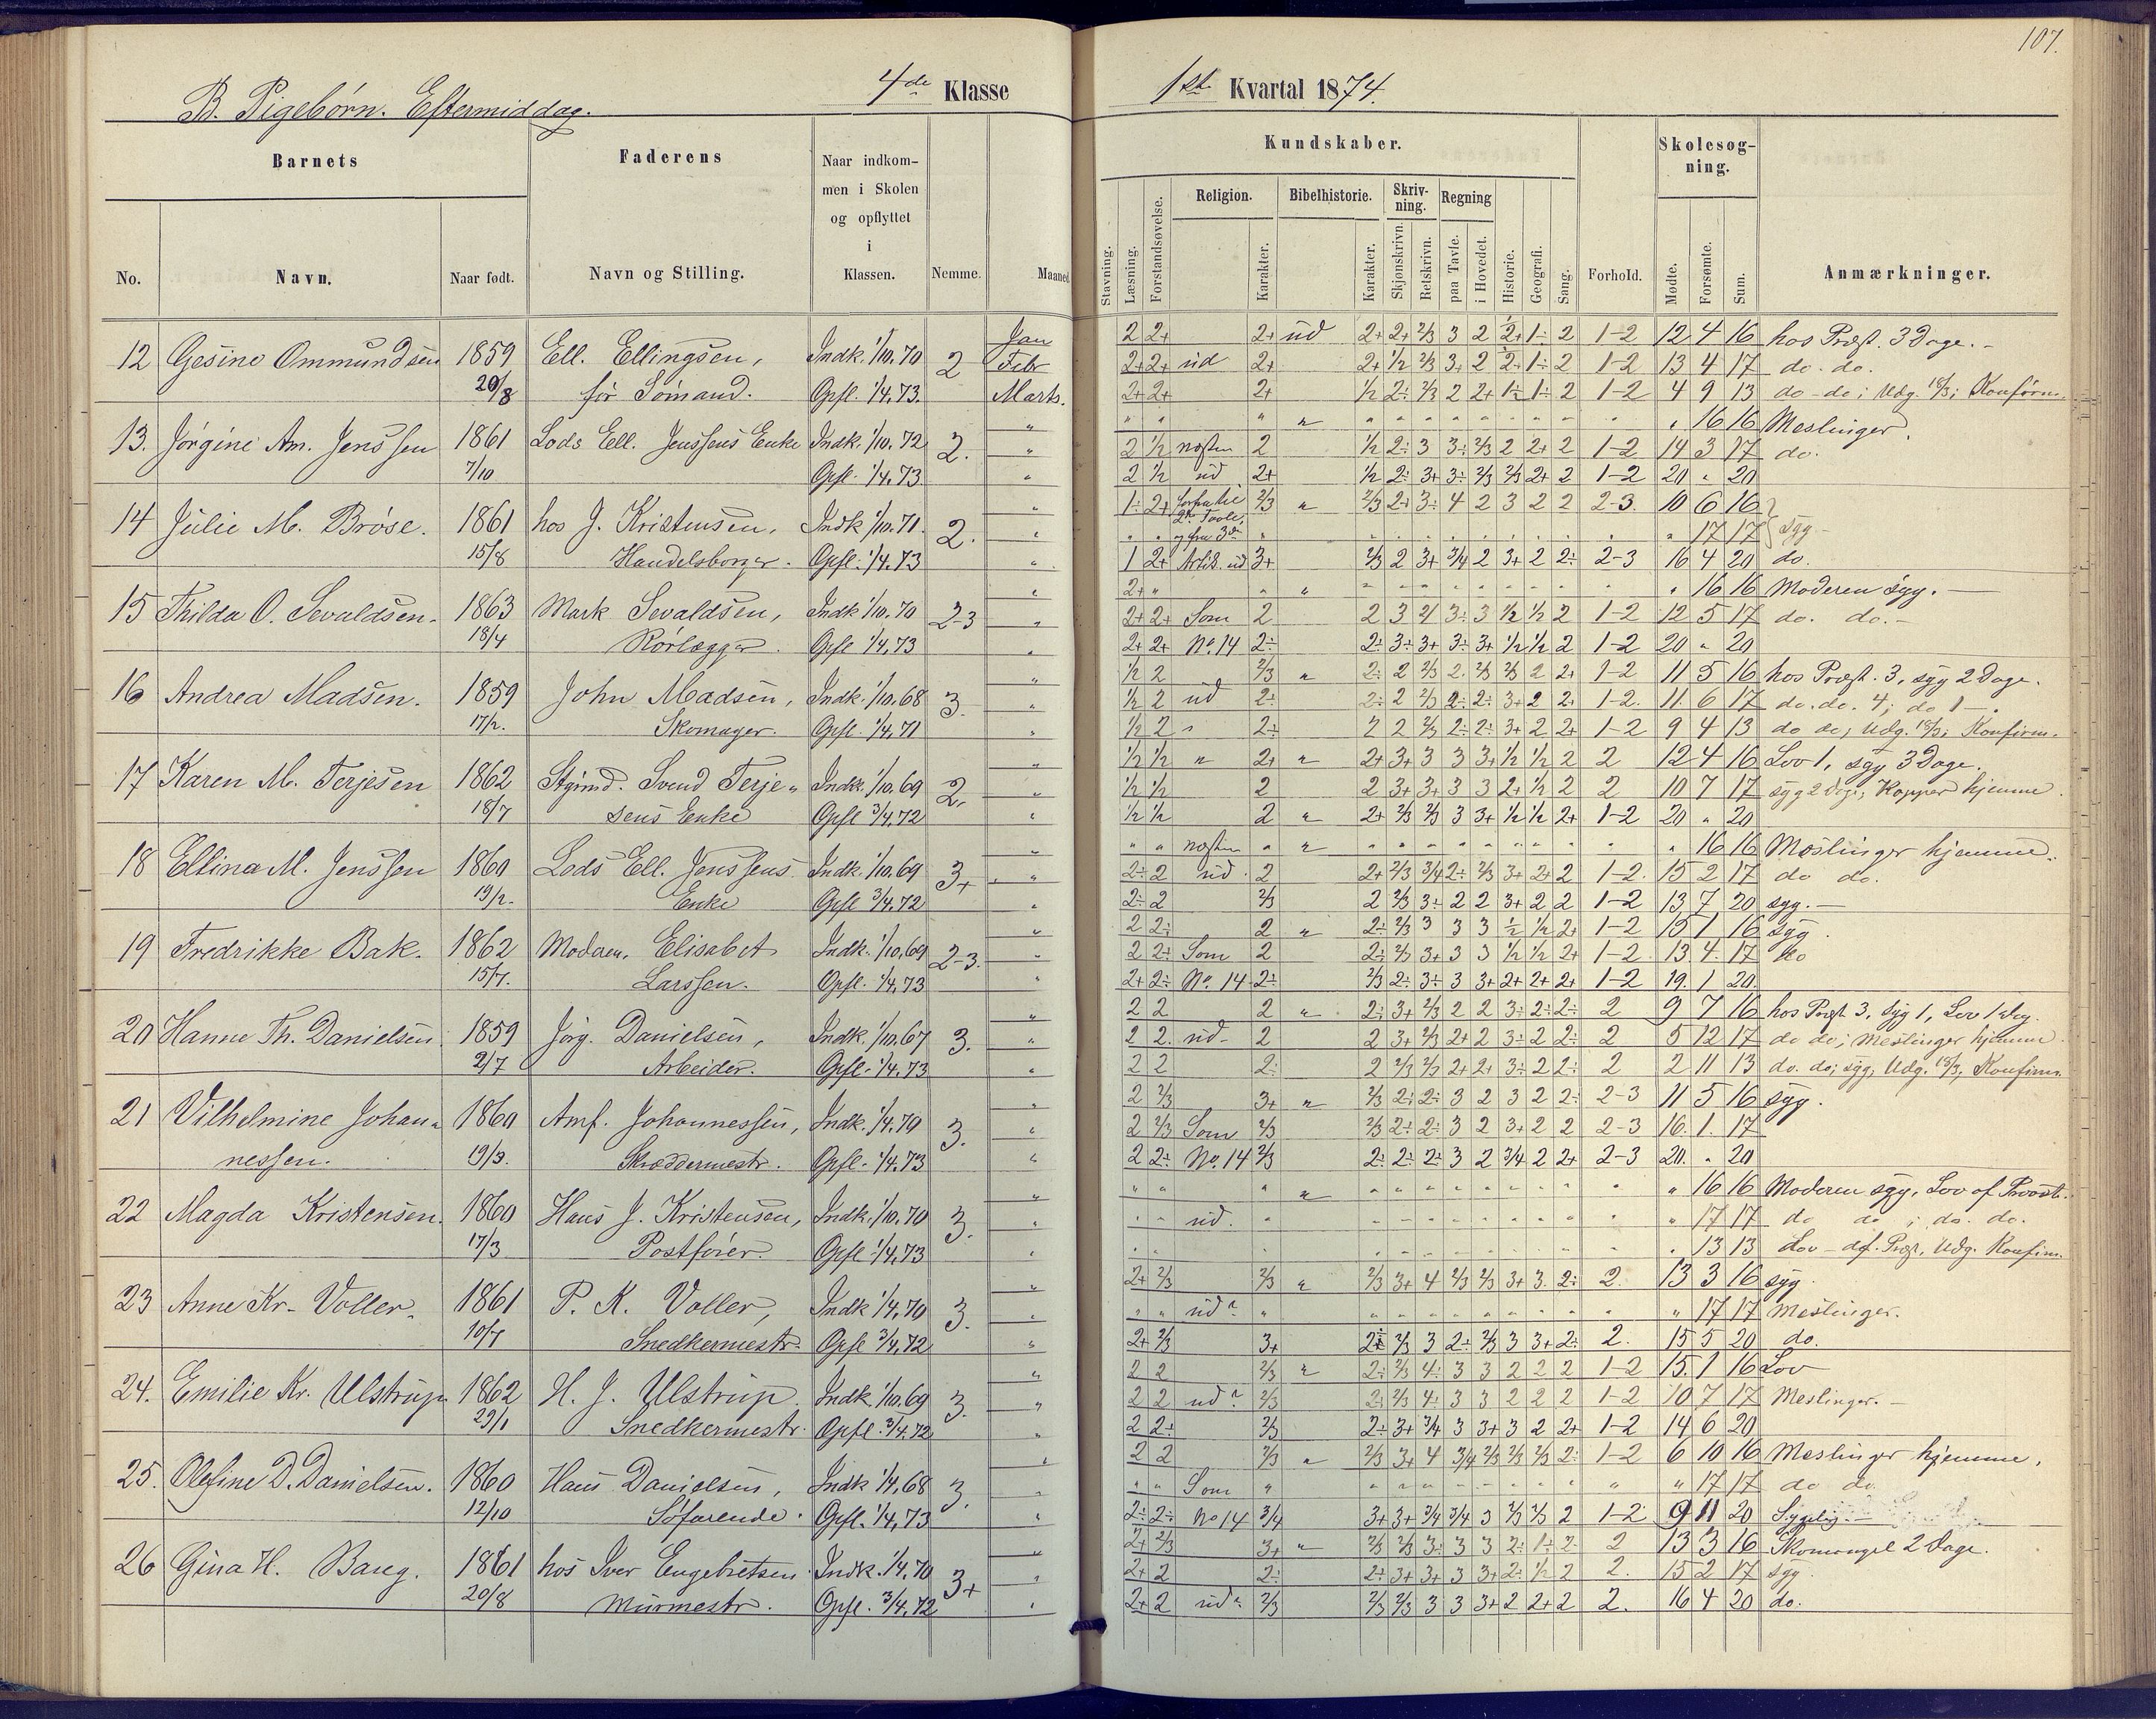 107.
B. Pigebørn. Eftermiddag.
4de Klasse
1st Kvartal 1874.
Barnets
Faderens
Naar indkom-
men i Skolen
og opflyttet
i
Klassen.
No.
Navn.
Naar født.
Navn og Stilling.
Nemme.
Maaned
Kundskaber.
Skolesøg-
ning.
Stavning.
Læsning.
Forstandsøvelse.
Religion.
Karakter.
Bibelhistorie.
Karakter.
Skriv-
ning.
Skjønskrivn.
Retskrivn.
Regning
paa Tavle.
i Hovedet.
Historie.
Geografi.
Sang.
Forhold.
Mødte.
Forsømte.
Sum.
Anmærkninger.
12 Gesine Ommundsen 1859 Ell. Ellingsen, Indk. 1/10.70 2 Jan
20/8 før Sømand. Opfl. 1/4.73. Febr
Marts.
13. Jørgine Am. Jenssen 1861 Lods Ell. Jenssens Enke Indk. 1/10.72 2.
7/10 Opfl. 1/4.73
14 Julie M. Brøse. 1861 hos J. Kristensen, Indk 1/10.71. 2.
15/8 Handelsborger. Opfl. 1/4.73
15 Thilda O. Sevaldsen. 1863 Mark Sevaldsen, Indk 1/10.70 2-3
18/4 Rørlægger. Opfl 1/4.73
16 Andrea Madsen. 1859 John Madsen, Indk. 1/10.68 3.
17/2. Skomager. Opfl. 1/4.71
17 Karen M. Terjesen 1862 Stgmd. Svend Terje- Indk. 1/10.69 2.
18/7 sens Enke Opfl 3/4.72
18 Ellina M. Jenssen 1860 Lods Ell. Jenssens Indk. 1/10.69 3+
19/2. Enke Opfl 3/4.72
19 Fredrikke Bak. 1862 Moderen, Elisabet Indk. 1/10.69 2-3.
15/7. Larssen. Opfl. 1/4.73
20 Hanne Th. Danielsen 1859 Jørg. Danielsen, Indk. 1/10.67 3.
2/7 Arbeider. Opfl. 1/4.73
21 Vilhelmine Johan- 1860 Amf. Johannessen, Indk. 1/4.70 3.
nessen. 19/3. Skræddermestr. Opfl. 1/4.73
22 Magda Kristensen. 1860 Hans J. Kristensen, Indk. 1/10.70 3.
17/3 Postfører. Opfl. 1/4.73
23 Anne Kr. Voller. 1861 P. K. Voller, Indk 1/4.70 3.
10/7 Snedkermestr. Opfl 3/4.72
24. Emilie Kr. Ulstrup. 1862 H. J. Ulstrup. Indk 1/10.69 3.
29/1 Snedkermestr. Opfl. 3/4.72
25. Olefine D. Danielsen. 1860 Hans Danielsen, Indk 1/4.68 3.
12/10 Søfarende. Opfl. 1/4.73
26 Gina H. Bang. 1861 hos Iver Engebretsen Indk. 1/4.70 3+
20/8 Murmestr. Opfl. 3/4.72
2 2+ 2+ ud 2+ 2+ 2/3 3 2 1÷ 2 1-2 12 4 16 hos Præst. 3 Dage.
2+ 2+ ud 2+ 2+ 1/2 2/3 1÷ 2 1-2 13 4 17 do. do.
2+ 2+ 2+ 1/2 2÷ 2/3 2 2+ 1÷ 2 1-2 4 9 13 do - do; Udg. 18/3; Konfirm.
16 16 Meslinger.
2 1/2 næsten 2 1/2 2÷ 3 3÷ 2/3 2 2+ 2 1-2 14 3 17 do.
2 1/2 ud 2+ 1/2 2÷ 3+ 3÷ 2/3 2/3 2+ 2 1-2 20 " 20
1÷ 2+ 2/3 2/3 2÷ 3÷ 4 2 3 2 2 2-3. 10 6 16
17 17 syg
1 2+ Artik. ud 3+ 2/3 2 3+ 3/4 2 3+ 2 2÷ 2-3 16 4 20 do.
16 16 Moderen syg.
2+ 2+ Som 2 2 3 4 3÷ 3 1/2 1/2 2 1-2 12 5 17 do. do.
2+ 2+ No. 14 2÷ 2÷ 3÷ 3÷ 3÷ 3+ 1/2 1/2 2 1-2 20 " 20
1/2 2 2/3 2÷ 2 2/3 2. 2/3 2/3 2 2+ 1-2 11 5 16 hos Præst. 3, syg 2 Dage.
1/2 2 ud 2÷ 2÷ 2 2/3 2÷ 2÷ 3+ 2 2+ 1-2. 11. 6 17 do. do. 4; do 1
1/2 2 2÷ 2 2 2/3 2÷ 2÷ 3+ 2 2+ 1-2 9 4 13 do do; Udg. 18/3; Konfirm.
1/2 1/2 " 2+ " 2+ 3+ 3 3 3+ 1/2 1/2 2 2 12 4 16 Lov 1, syg 3 Dage.
1/2 1/2 2 2 3+ 3+ 3 3 2+ 1/2 2 2 10 7 17 syg 2 Dge, Kopper hjemme
1/2 1/2 2 " 2+ 2/3 2/3 3 3+ 1/2 1/2 2+ 1-2 20 " 20
næsten 16 16 Meslinger hjemme.
2÷ 2 ud. 2 2+ 2/3 3/4 2÷ 2/3 3+ 2+ 2 1-2. 15 2 17 do do.
2÷ 2 2/3 2 2/3 3÷ 2 2 3+ 2 2 1-2 13 7 20 syg.
2 2÷ 2 " 2÷ 2/3 3 3 3 1/2 1/2 2+ 1-2 15 1 16 syg.
2 2÷ Som 2 2÷ 2/3 3+ 3 3 1/2 1/2 2+ 1-2 13 4. 17 do
2+ 2÷ No. 14 2÷ 2/3 2÷ 3÷ 3 3+ 2+ 2+ 2+ 1-2 19. 1 20.
2 2 2 " 2÷ 3+ 2/3 2 2 3÷ 2÷ 2÷ 2 9 7 16 hos Præst 3, syg 1, Lov 1 dag.
2 2. ud 2 2 3+ 2/3 2+ 2 3÷ 2 2÷ 2 5 12 17 do do; Meslinger hjemme
2 2 2÷ 2 2/3 2/3 2+ 2+ 3÷ 2 2÷ 2 2 11 13 do. do; syg, Udg. 18/3, Konfirm.
2 2/3 3+ " 2/3 2÷ 2÷ 3 2 3 2 2÷ 2-3 11 5 16 syg.
2 2/3 Som 2/3 2/3 2÷ 2÷ 3 2 3+ 2 2 2-3 16. 1. 17
2 2÷ No. 14 2/3 2÷ 2÷ 2÷ 3 2 3/4 2 2+ 2-3 20. " 20
16 16 Moderen syg, Lov af Provst.
ud. 17 17 do do; do. do.
13 13 Lov - af Præst, Udg. Konfirm.
2+ 2/3 2/3 " 2/3 3+ 4 2/3 2/3 3+ 3. 2÷ 2. 13 3 16 syg.
ud 17 17 Meslinger.
2+ 2/3 3+ 2/3 3 2÷ 2/3 3 3+ 2÷ 2. 15 5 20 do.
2 2 2/3 " 2÷ 2/3 4÷ 3 3 2 2 2 1-2 15. 1 16 Lov
2 2 ud 2/3 2÷ 2/3 4÷ 3 3 2 2 2 1-2 10 7 17 Meslinger.
2 2÷ 2/3 2÷ 3+ 3/4 3 3+ 3 2 2+ 1-2 14 6 20
2 2 2/3 " 2/3 3+ 4 3/4 2/3 2/3 2/3 2÷ 1-2 6 10 16 Meslinger hjemme.
Som 17 17 do do.
2÷ 2÷ No 14 3/4 3+ 3+ 3/4 3/4 3 2/3 2/3 2 1-2 9 11 20 Sygelig
2+ 2/3 3+ " 2/3 2/3 3÷ 3 3 2÷ 1÷ 2. 2 13 3 16 Skomangel 2 Dage.
2+ 2 2÷ 2+ 3+ 3+ 3 3+ 2÷ 1/2 2 2. 15 2 17 syg
2+ 2 ud 2/3 2/3 2/3 3 3 3+ 2 2+ 2 2. 16 4 20 do.